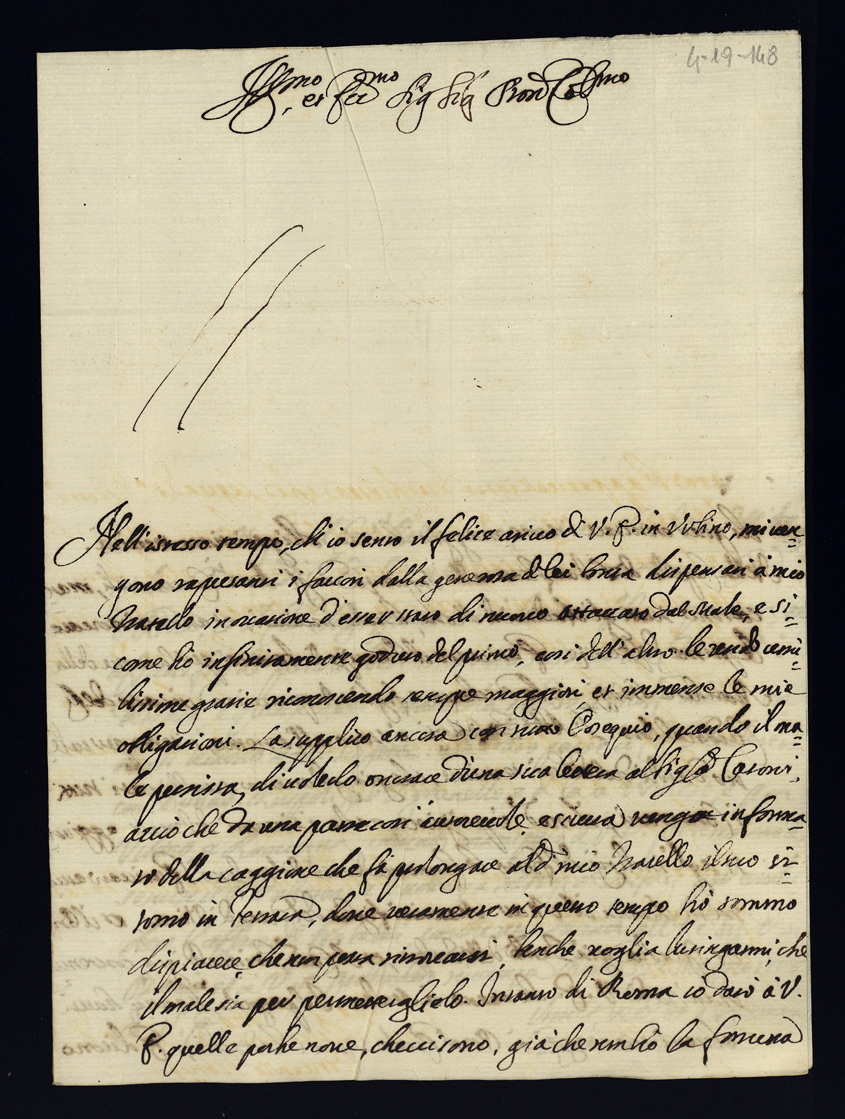 4-19-148
Illmo et Ecc.mo Sig Sig Pron Colmo
Nell'istesso tempo, ch'io sento il felice arivo di V. E. in Urbino, mi ven=
gono rapresentati i favori dalla generosa di lei bontà dispensati à mio
fratello in occasione d'esser stato di nuovo attaccato dal male, e si=
come hò infinitamente goduto del primo, così dell'altro le rendo umi=
lissime grazie riconoscendo sempre maggiori, et immense le mie
obligazioni. La supplico ancora con tutto l'ossequio, quando il ma=
le persista, di volerlo onorare di una sua lettera al Sig.r Casoni,
acciò che da una parte così autorevole, e sicura venga informa=
to della caggione che fà prolongare al d.o mio fratello il suo ri=
torno in, dove veramente in questo tempo hò sommo
dispiacere, che non possa ritrovarsi, benche voglia lusingarmi, che
il male sia per permetterglielo. Intanto di Roma io darò à V.
E. quelle poche nove, che ci sono, già che non hò la fortuna